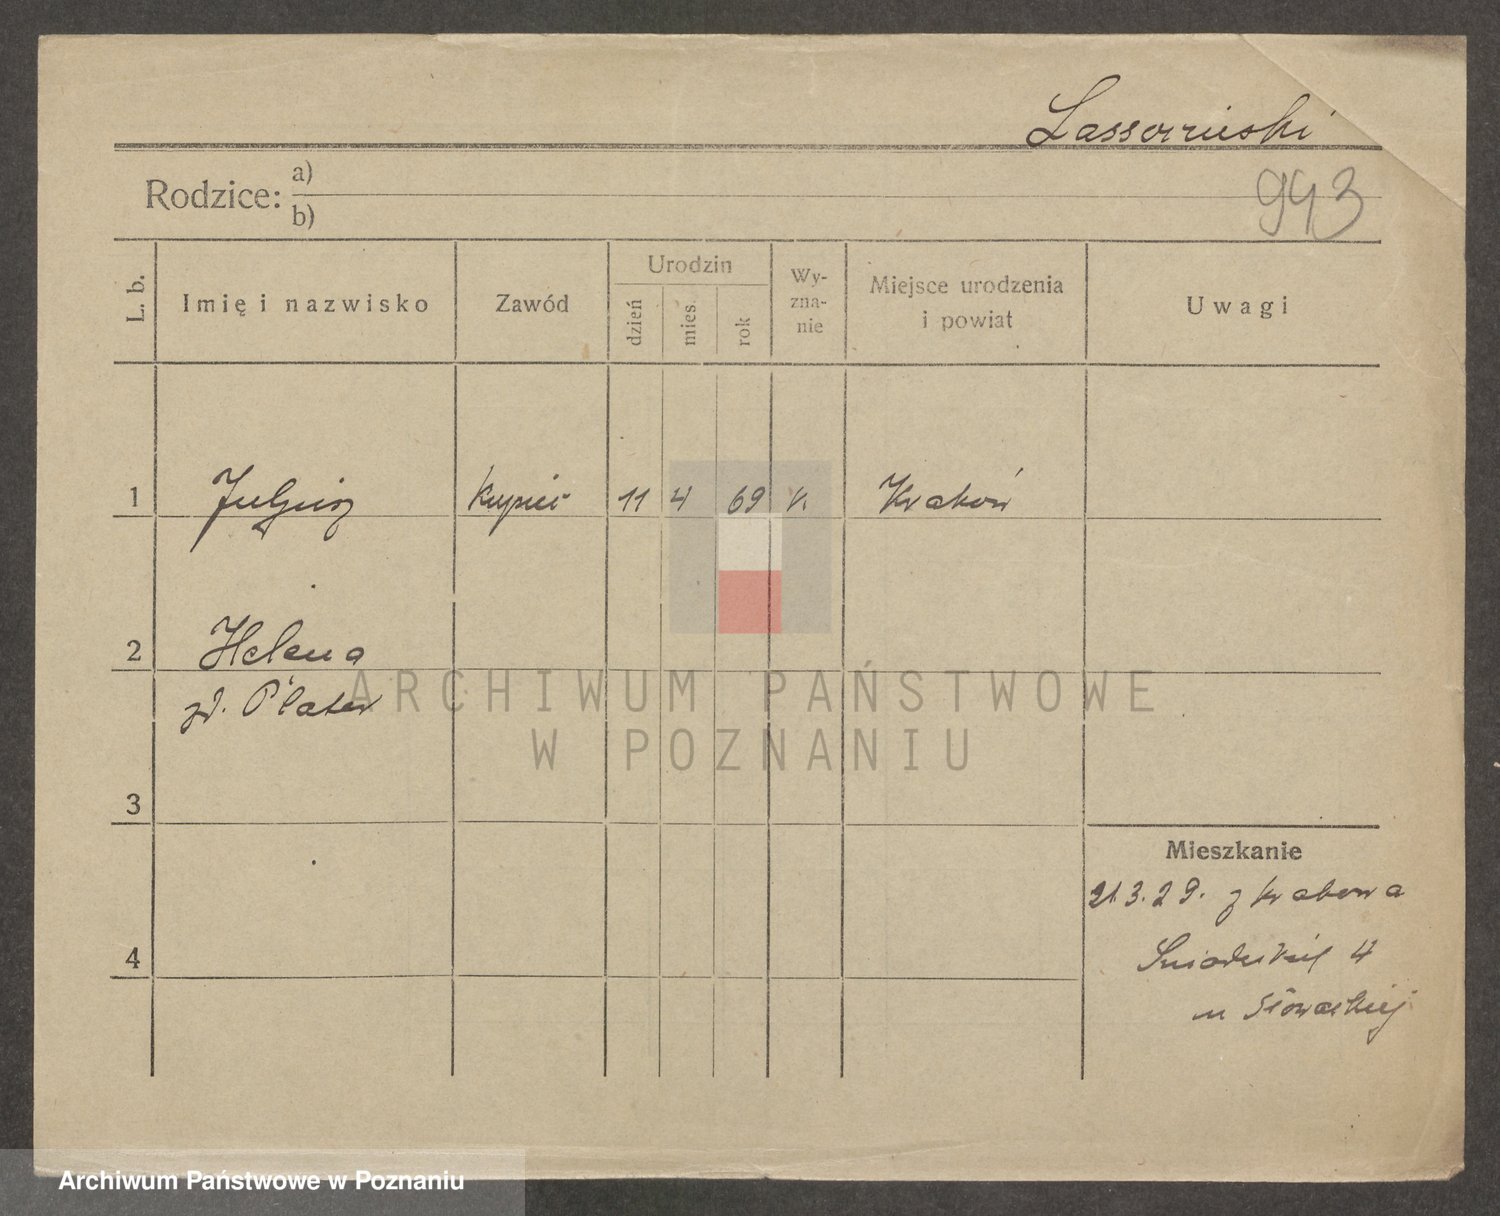 Lassociński
943
Rodzice: a)
b)
L. b.
Imię i nazwisko
Zawód
Urodzin
dzień
mies.
rok
Wy-
zna-
nie
Miejsce urodzenia
i powiat
Uwagi
1 Juljusz kupiec 11 4 69 k. Kraków
2 Helena
zd. Plater
3
4
Mieszkanie
21.3.29. z Krakowa
Śniadeckiej 4
u Słowackiej
ARCHIWUM PAŃSTWOWE
W POZNANIU
Archiwum Państwowe w Poznaniu